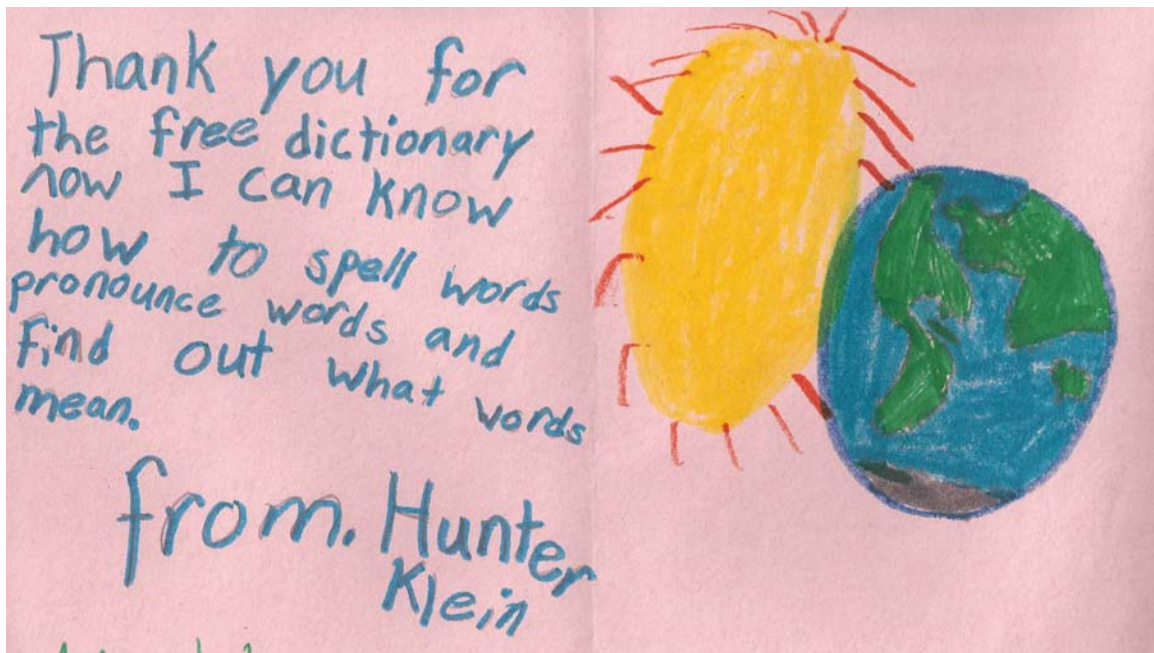 Thank you for
the free dictionary
now I can know
how to spell words
pronounce words and
find out what words
mean.
from. Hunter
Klein